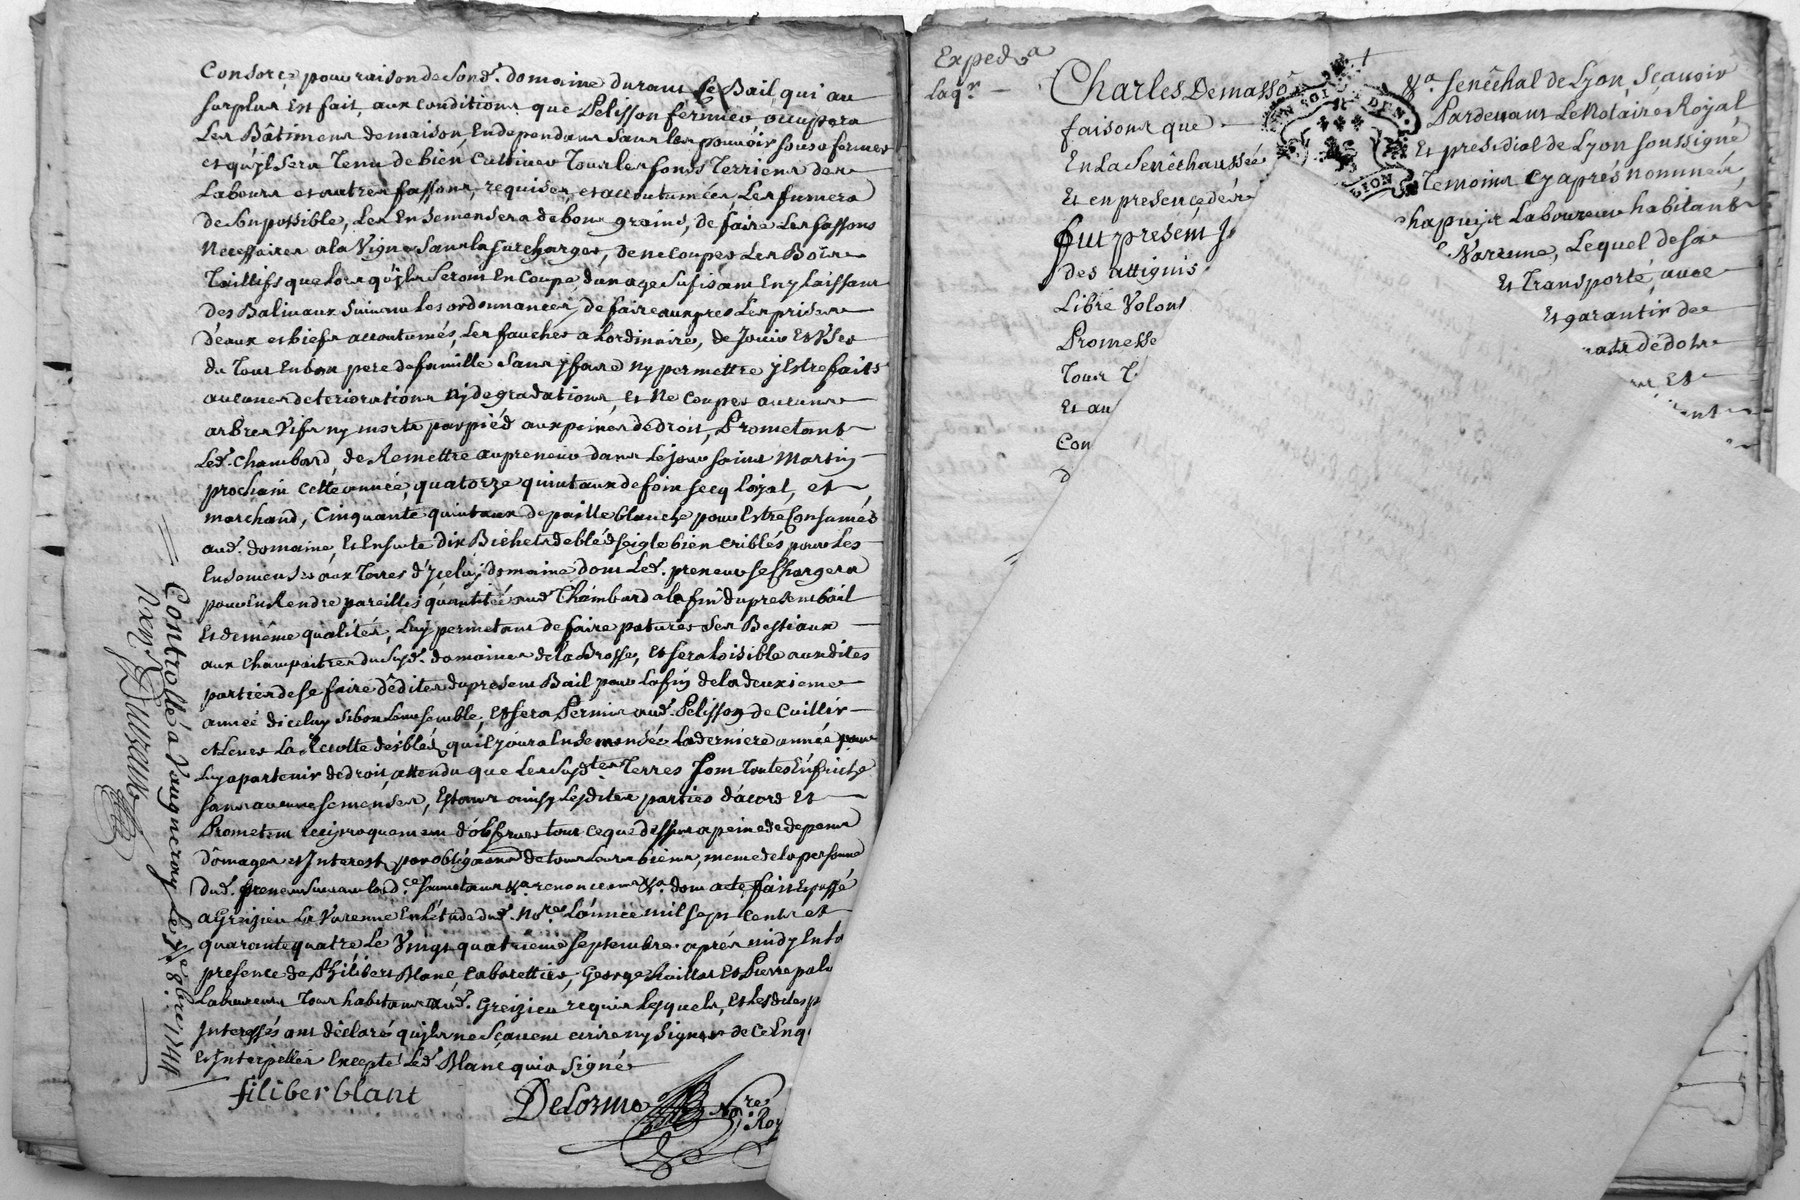 Consorce pour raison de sond. domaine durant le Bail, qui au
surplus Est fait aux conditions que Pelisson fermier occupera
Les Bâtimens de maison, Endependans sans les pouvoir sousafermer
et qu'yl sera Tenu de bien Cultiver Tous les fonds Terriens des
Labours et autres fassons requises, et accoutumées, Les fumera
de son possible, Les Ensemensera de bons grains, de faire Les fassons
Necessaires a la Vigne sans la surcharger, de ne couper Les Bois
Taillifs que Lors qu'yls seront En Coupe, dun age sufisant En y laissant
des Balivaux suivant les ordonnances, de faire aux pres Les prises
d'eaux et biefs accoutumés, Les faucher a Lordinaire, de Jouir Et Vser
du Tout En bon pere de famille sans y faire ny permettre y Estre faits
aucunes deteriorations ny degradations, et Ne Couper aucuns
arbres Vifs ny morts par pied aux peines de droit, Prometant
Led. Chambard, de Remettre au preneur dans Le jour saint Martin
prochain cette année, quatorze quintaux de foin secq loyal, et
marchand, Cinquante quintaux de paille blanche pour Estre Consumés
aud. domaine, Et Ensuite dix Bichets de bled seigle bien criblés pour Les
Ensemenser aux Terres d'yceluy domaine dont Led. preneur se Chargera
pour En Rendre pareilles quantités aud. Chambard a la fin du present bail
Et de même qualités, Luy permetant de faire paturer ses Bestiaux
aux Champaitres dusyd. domaine de la Brosse, Et sera loisible auxdites
parties de se faire dédites du present Bail pour la fin de la deuxieme
année diceluy si bon Leur semble, Et sera Permis aud. Pelisson de Cuillir
et Lever La Récolte des bleds qu'il y aura Ensemensée La derniere année pour
Luy apartenir de droit, attendu que Les susdtes Terres sont Toutes En friche
sans aucunes semenses, Estant ainsy Lesdites parties d'acord Et
Prometent reciproquement d'observer tout ce que dessus a peine de depens
Domages et Interest, par obligaons de tous Leurs biens, meme de la personne
dud. preneur
a Grezieu La Varenne En L'étude dud. Nore. L'année mil sept Cents et
quarante quatre Le Vingt quatrieme septembre apres midy En la
presence de Philibert Blanc, Cabarettier, George
Laboureurs Tous habitans aud. Grezieu requis Lesquels, Et Lesdites
Interessés ont déclaré qu'yls ne sçavent ecrire ny signer de Ce Enq
Et Interpellés Excepté Led. Blanc qui a signé
filiber blant
Delorme Nre Roy
Controllé à Vaugneray le 8bre 1744
Expeda
laqr.
Charles Demasso &a. senêchal de Lyon, sçavoir
faisons que Pardevant Le Notaires Royal
En La Senêchaussée Et presidial de Lyon soussigné
Et en presence des Temoins Cy après nommés,
fut present J Chapuis Laboureur habitant
des attignis Varenne, Lequel de sa
Libre Volont Et Transporté, avec
Promesse Et garantir de
Tour T
Et au
Con
EN SOL DEN.
LION